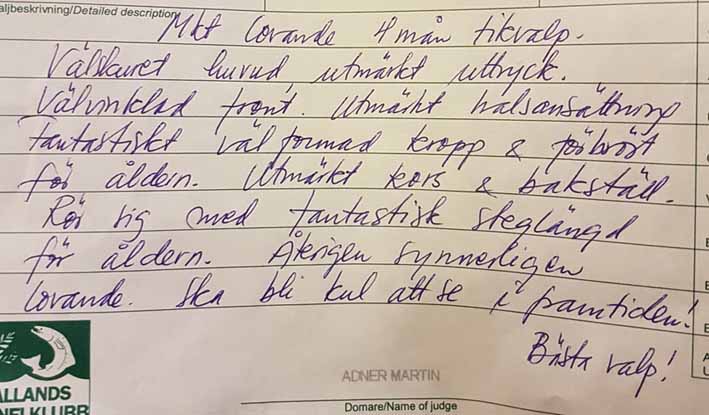 aljbeskrivning/Detailed description
Mkt lovande 4 mån tikvalp.
Välskuret huvud, utmärkt uttryck.
Välvinklad front. Utmärkt halsansättning
Fantastiskt väl formad kropp & förbröst
för åldern. Utmärkt kors & bakställ.
Rör sig med fantastisk steglängd
för åldern. Återigen synnerligen
lovande. Ska bli kul att se i framtiden!
Bästa valp!
ADNER MARTIN
Domare/Name of judge
ALLANDS
NELKLUBB